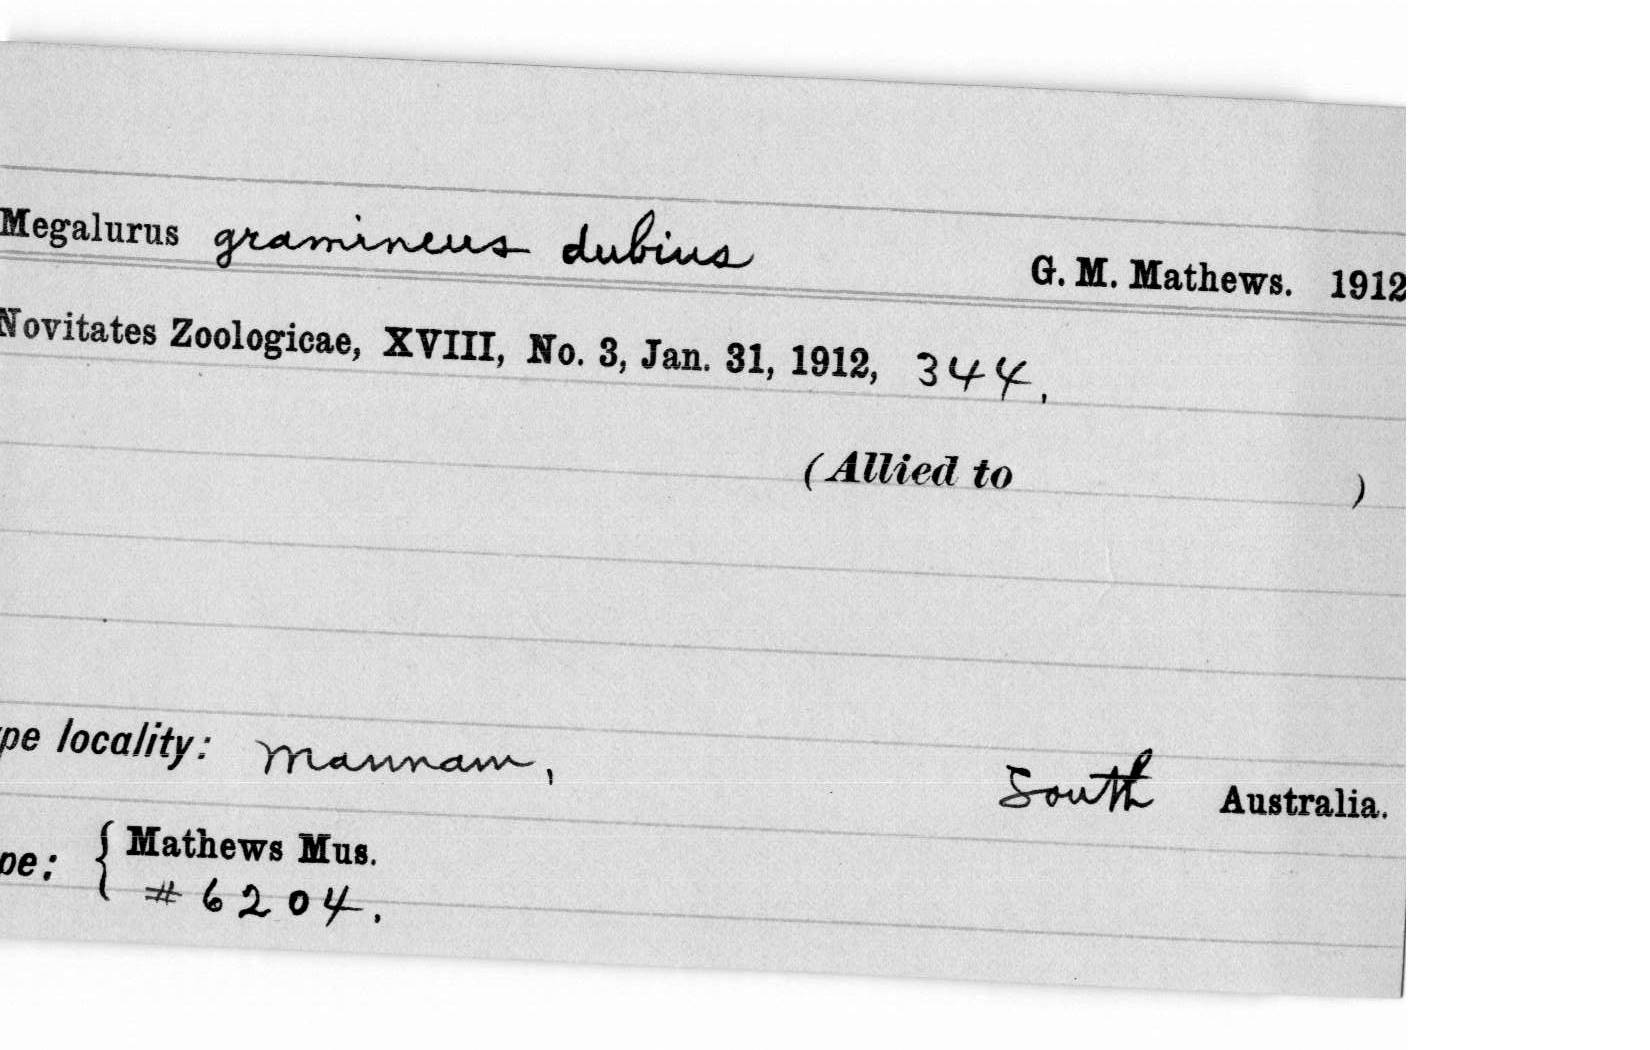 Megalurus gramineus dubius G. M. Mathews. 1912
Novitates Zoologicae, XVIII, No. 3, Jan. 31, 1912, 344.
(Allied to )
ype locality: Mannam, South Australia.
pe: { Mathews Mus.
# 6204.